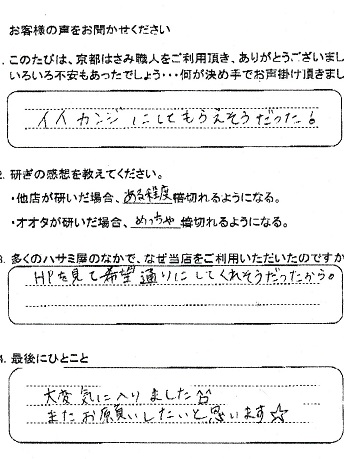 お客様の声をお聞かせください
.このたびは、京都はさみ職人をご利用頂き、ありがとうございまし
いろいろ不安もあったでしょう・・・何が決め手でお声掛け頂きまし
イイカンジにしてもらえそうだった。
2. 研ぎの感想を教えてください。
・他店が研いだ場合、ある程度 皆切れるようになる。
・オオタが研いだ場合、めっちゃ 皆切れるようになる。
3. 多くのハサミ屋のなかで、なぜ当店をご利用いただいたのですか
HPを見て希望通りにしてくれそうだったから。
4. 最後にひとこと
大変気に入りました
またお願いしたいと思います☆